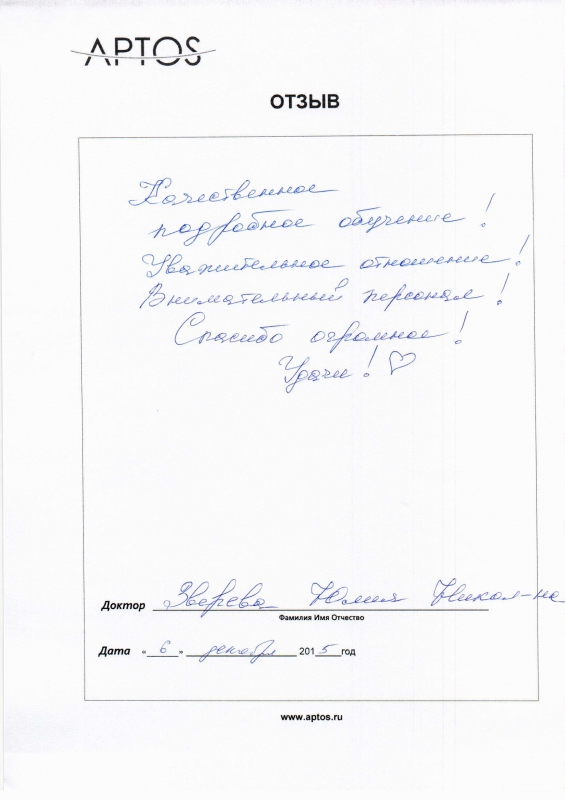 APTOS
ОТЗЫВ
Качественное
подробное обучение!
Уважительное отношение!
Внимательный персонал!
Спасибо огромное!
Удачи! ♡
Доктор Зверева Юлия Никол-на
Фамилия Имя Отчество
Дата «6» декабря 2015 год
www.aptos.ru